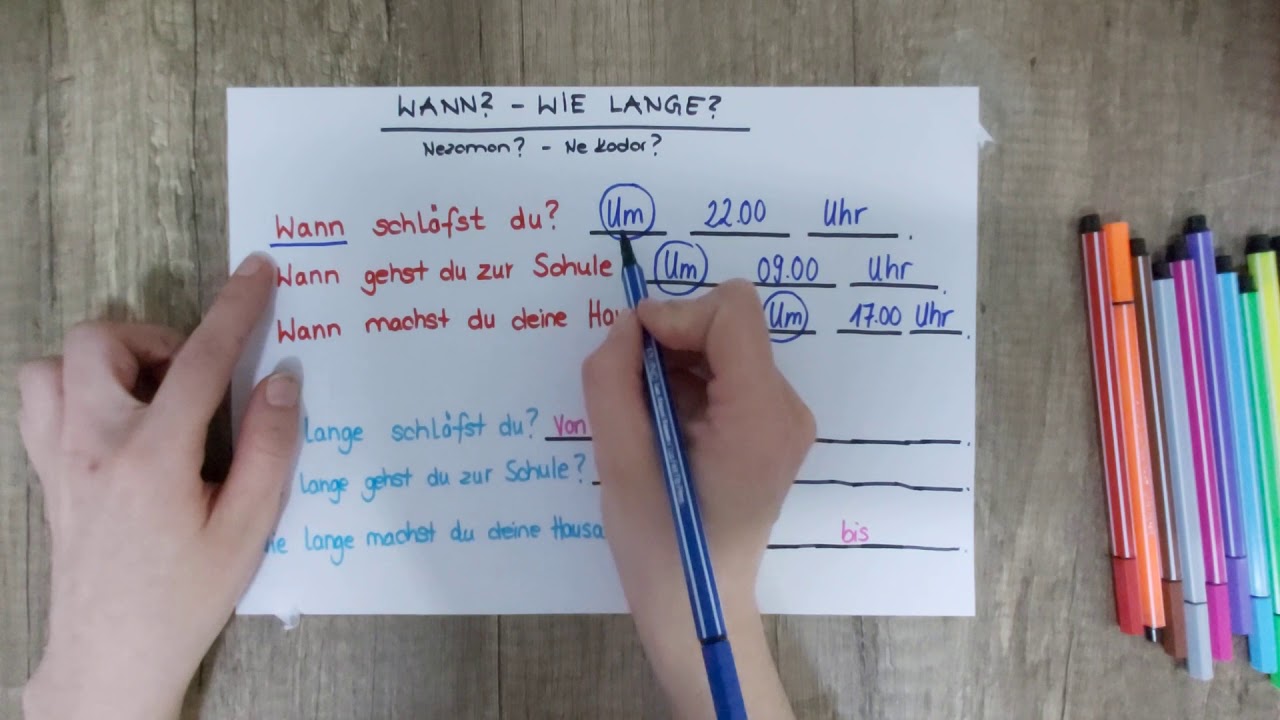 WANN? - WIE LANGE?
Nezaman? - Ne kadar?
Wann schläfst du? Um 22.00 Uhr.
Wann gehst du zur Schule Um 09.00 Uhr.
Wann machst du deine Um 17.00 Uhr.
lange schläfst du? Von
lange gehst du zur Schule?
lange machst du deine bis